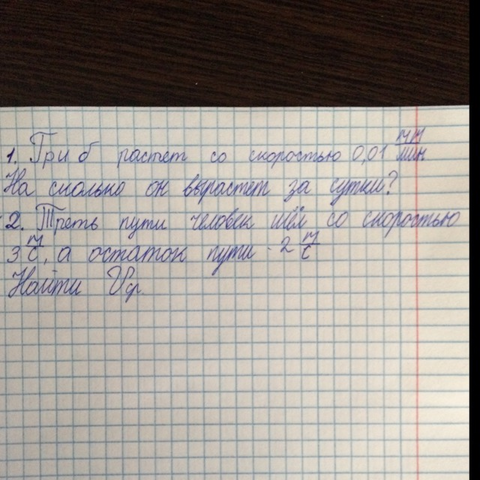 1. Гриб растет со скоростью 0,01 мм/мин
На сколько он вырастет за сутки?
2. Треть пути человек шёл со скоростью
3 м/с, а остаток пути - 2 м/с
Найти Vср.